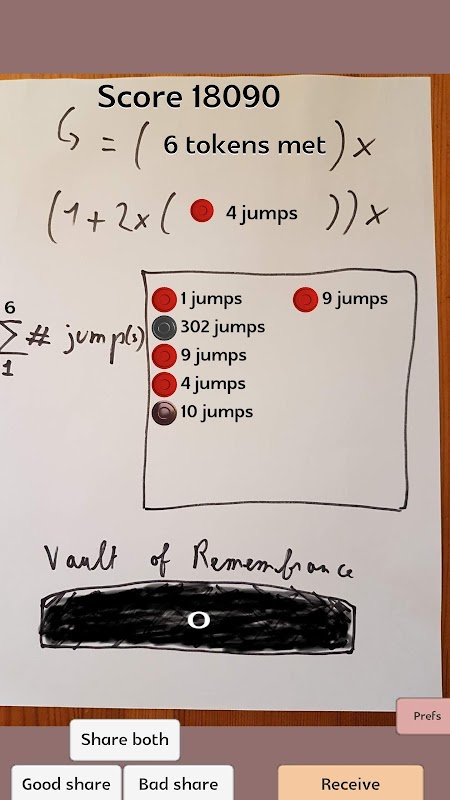 Score 18090
G = ( 6 tokens met ) x
(1 + 2 x ( 4 jumps )) x
6
∑ # jump(s)
1
1 jumps
302 jumps
9 jumps
4 jumps
10 jumps
9 jumps
Vault of Remembrance
0
Prefs
Share both
Good share
Bad share
Receive